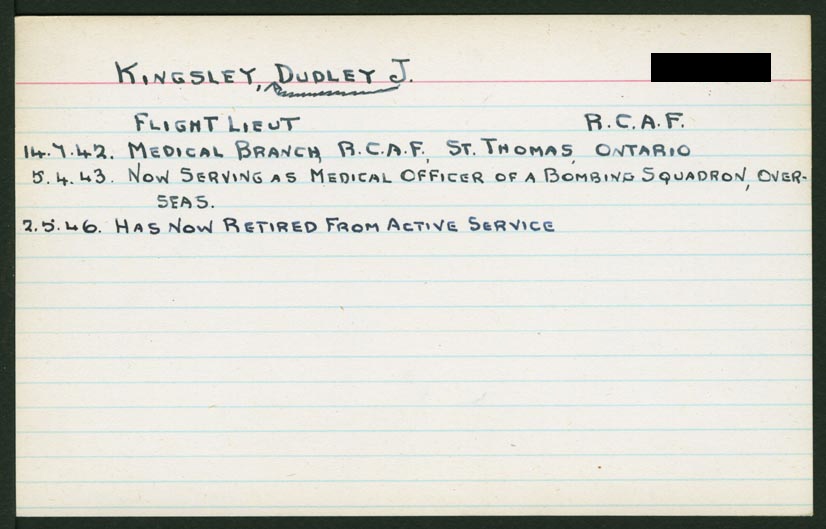 KINGSLEY, DUDLEY J.
FLIGHT LIEUT R.C.A.F.
14.7.42. MEDICAL BRANCH, R.C.A.F., ST. THOMAS, ONTARIO
5.4.43. NOW SERVING AS MEDICAL OFFICER OF A BOMBING SQUADRON, OVER-
SEAS.
2.5.46. HAS NOW RETIRED FROM ACTIVE SERVICE